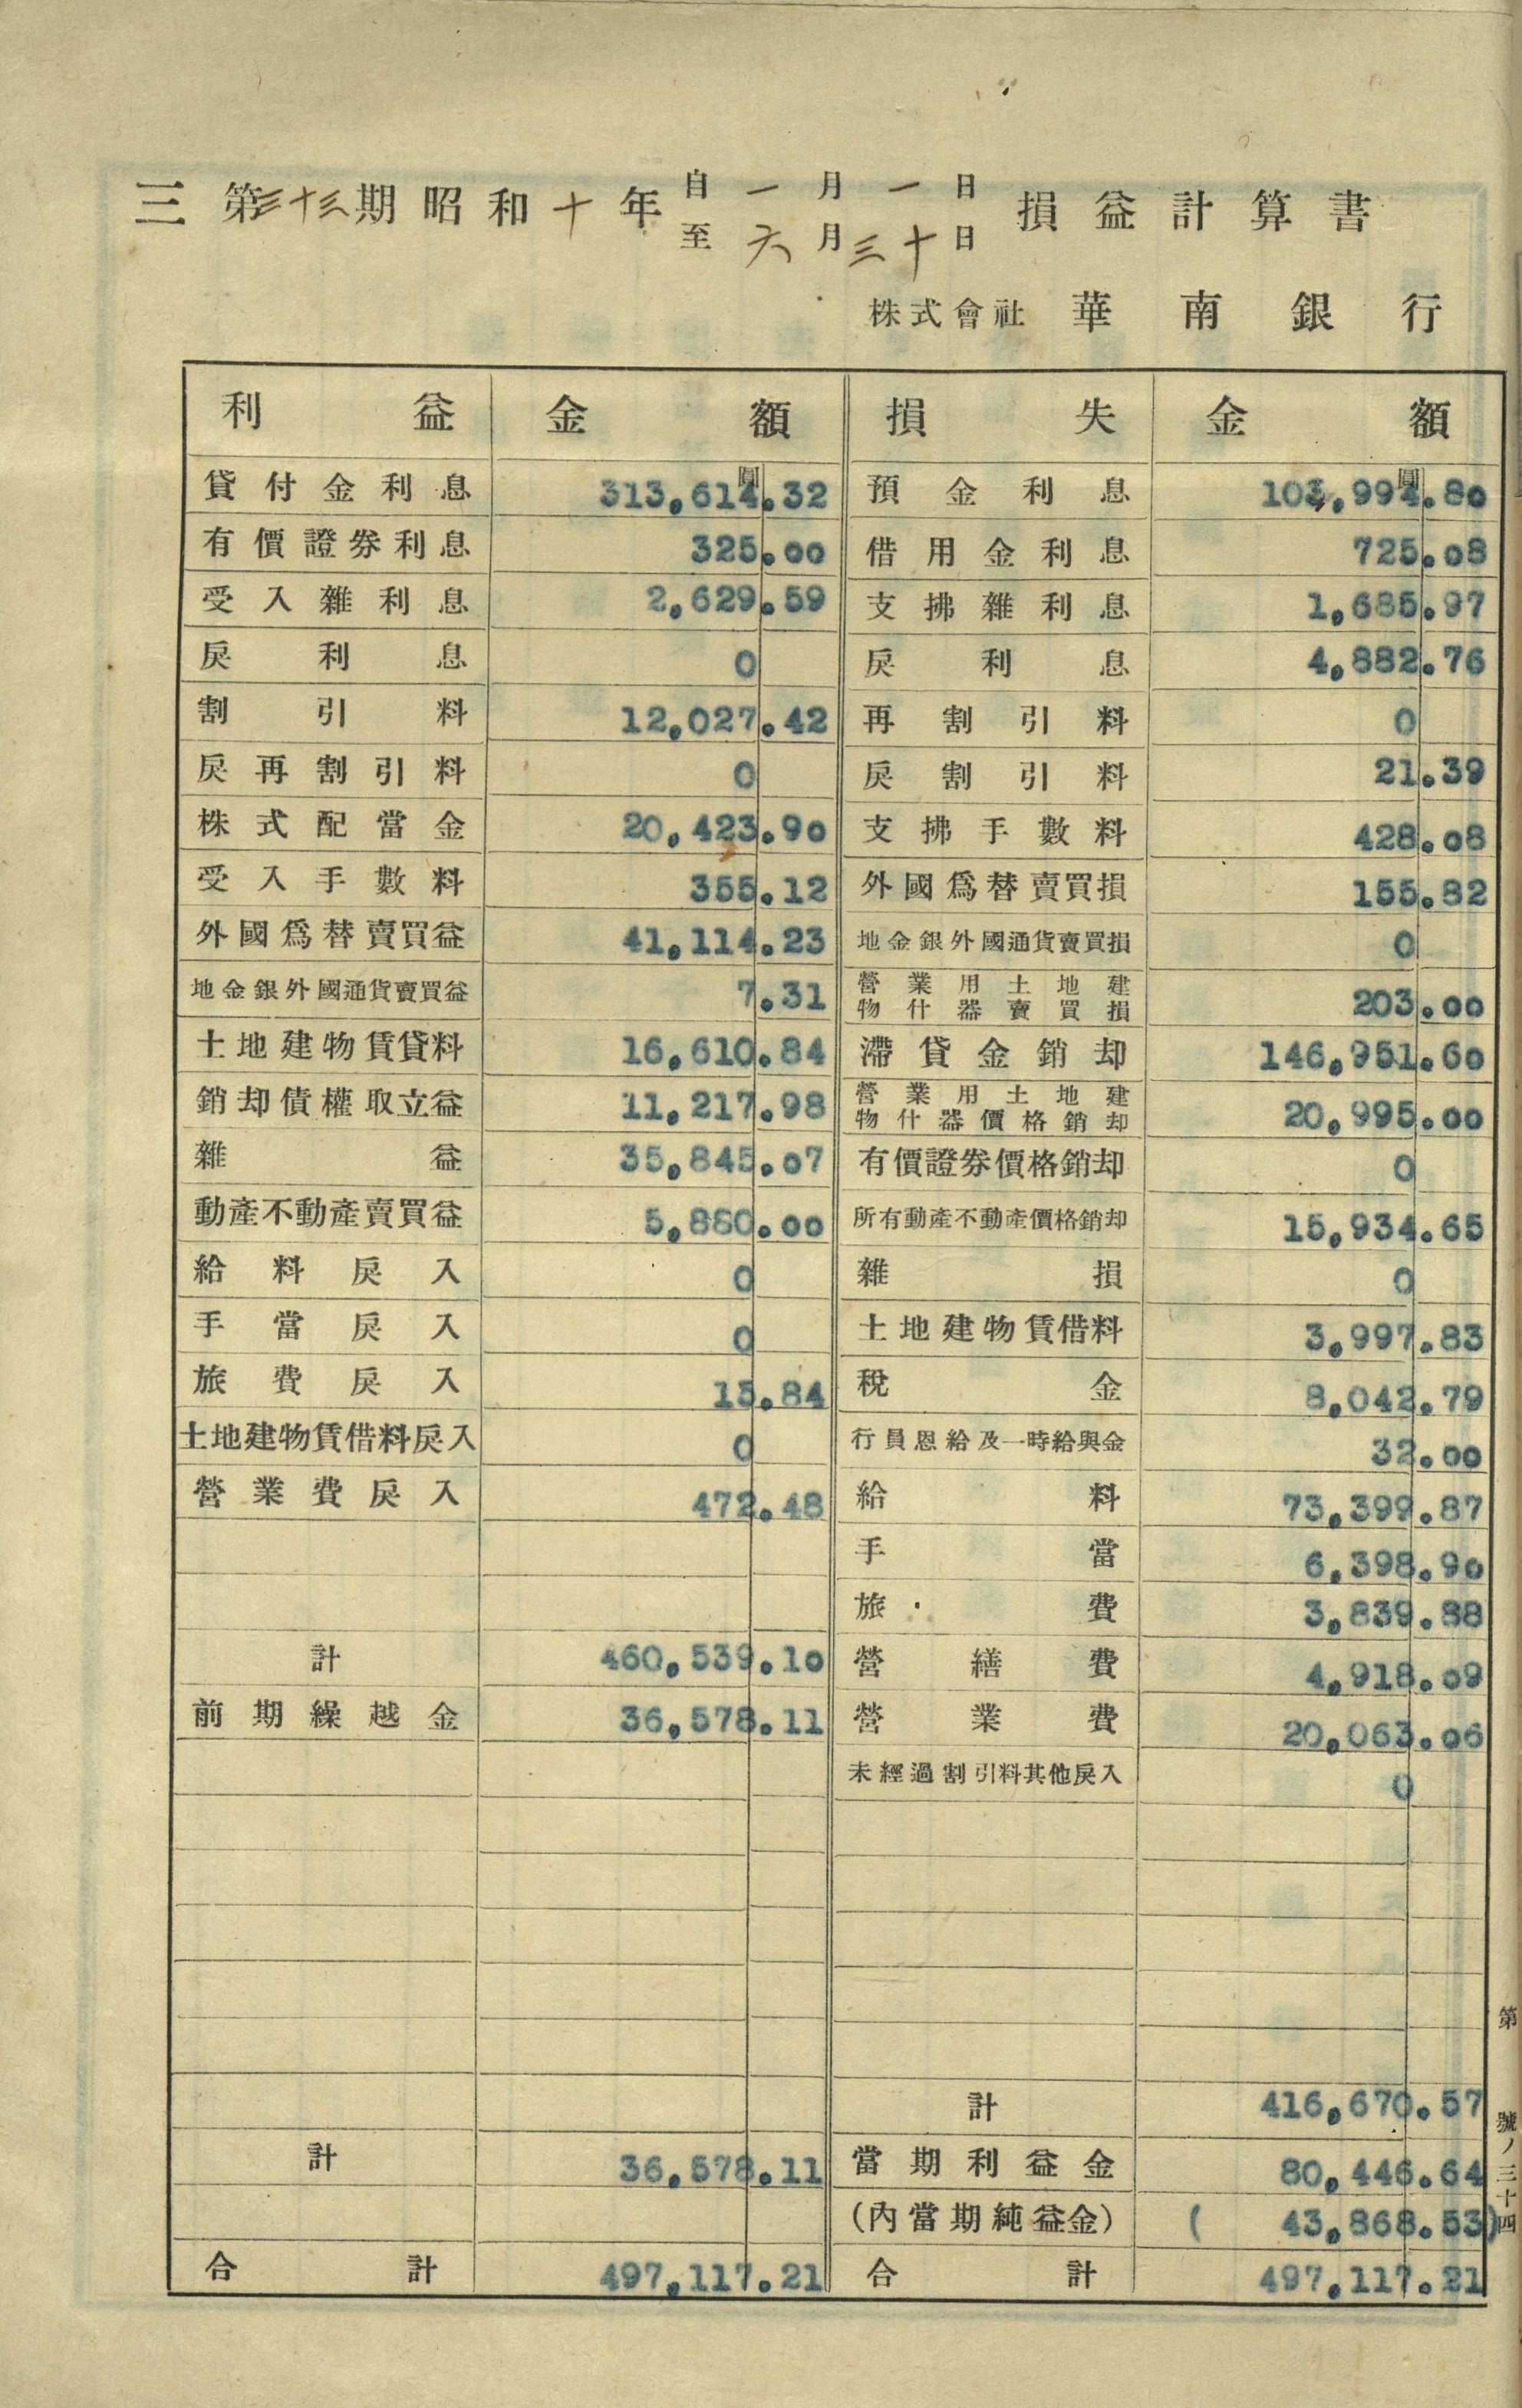 三 第三十三期昭和十年 自一月一日 至六月三十日 損益計算書
株式會社 華南銀行
利益 金額 損失 金額
貸付金利息 313,614.32 預金利息 103,994.80
圓 圓
有價證券利息 325.00 借用金利息 725.08
受入雜利息 2,629.59 支拂雜利息 1,685.97
戾利息 0 戾利息 4,882.76
割引料 12,027.42 再割引料 0
戾再割引料 0 戾割引料 21.39
株式配當金 20,423.90 支拂手數料 428.08
受入手數料 355.12 外國爲替賣買損 155.82
外國爲替賣買益 41,114.23 地金銀外國通貨賣買損 0
地金銀外國通貨賣買益 7.31 營業用土地建物什器賣買損 203.00
土地建物賃貸料 16,610.84 滯貸金銷却 146,951.60
銷却債權取立益 11,217.98 營業用土地建物什器價格銷却 20,995.00
雜益 35,845.07 有價證券價格銷却 0
動產不動產賣買益 5,880.00 所有動產不動產價格銷却 15,934.65
給料戾入 0 雜損 0
手當戾入 0 土地建物賃借料 3,997.83
旅費戾入 15.84 稅金 8,042.79
土地建物賃借料戾入 0 行員恩給及一時給與金 32.00
營業費戾入 472.48 給料 73,399.87
手當 6,398.90
旅費 3,839.88
計 460,539.10 營繕費 4,918.09
前期繰越金 36,578.11 營業費 20,063.06
未經過割引料其他戾入 0
計 416,670.57
計 36,578.11 當期利益金 80,446.64
(內當期純益金) ( 43,868.53)
合計 497,117.21 合計 497,117.21
第 號ノ三十四